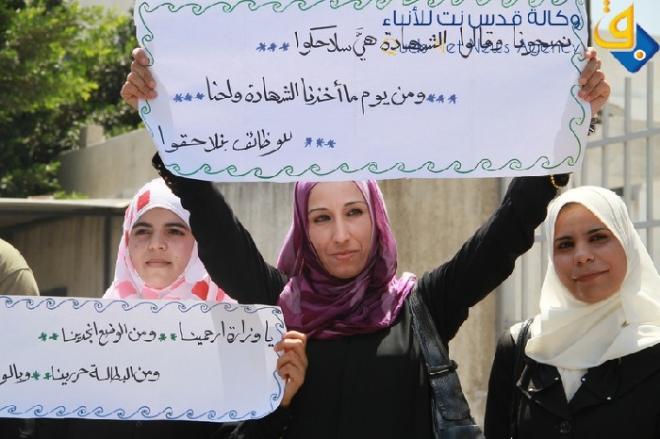 وكالة قدس نت للأنباء
Net News Agency
وقالوا الشهادة هيَّ سلاحكوا ***
*** ومن يوم ما أخذنا الشهادة واحنا ***
*** للوظائف بنلاحقوا
يا وزارة ارحمينا ** ومن الوضع انجدينا **
ومن البطالة حررينا **